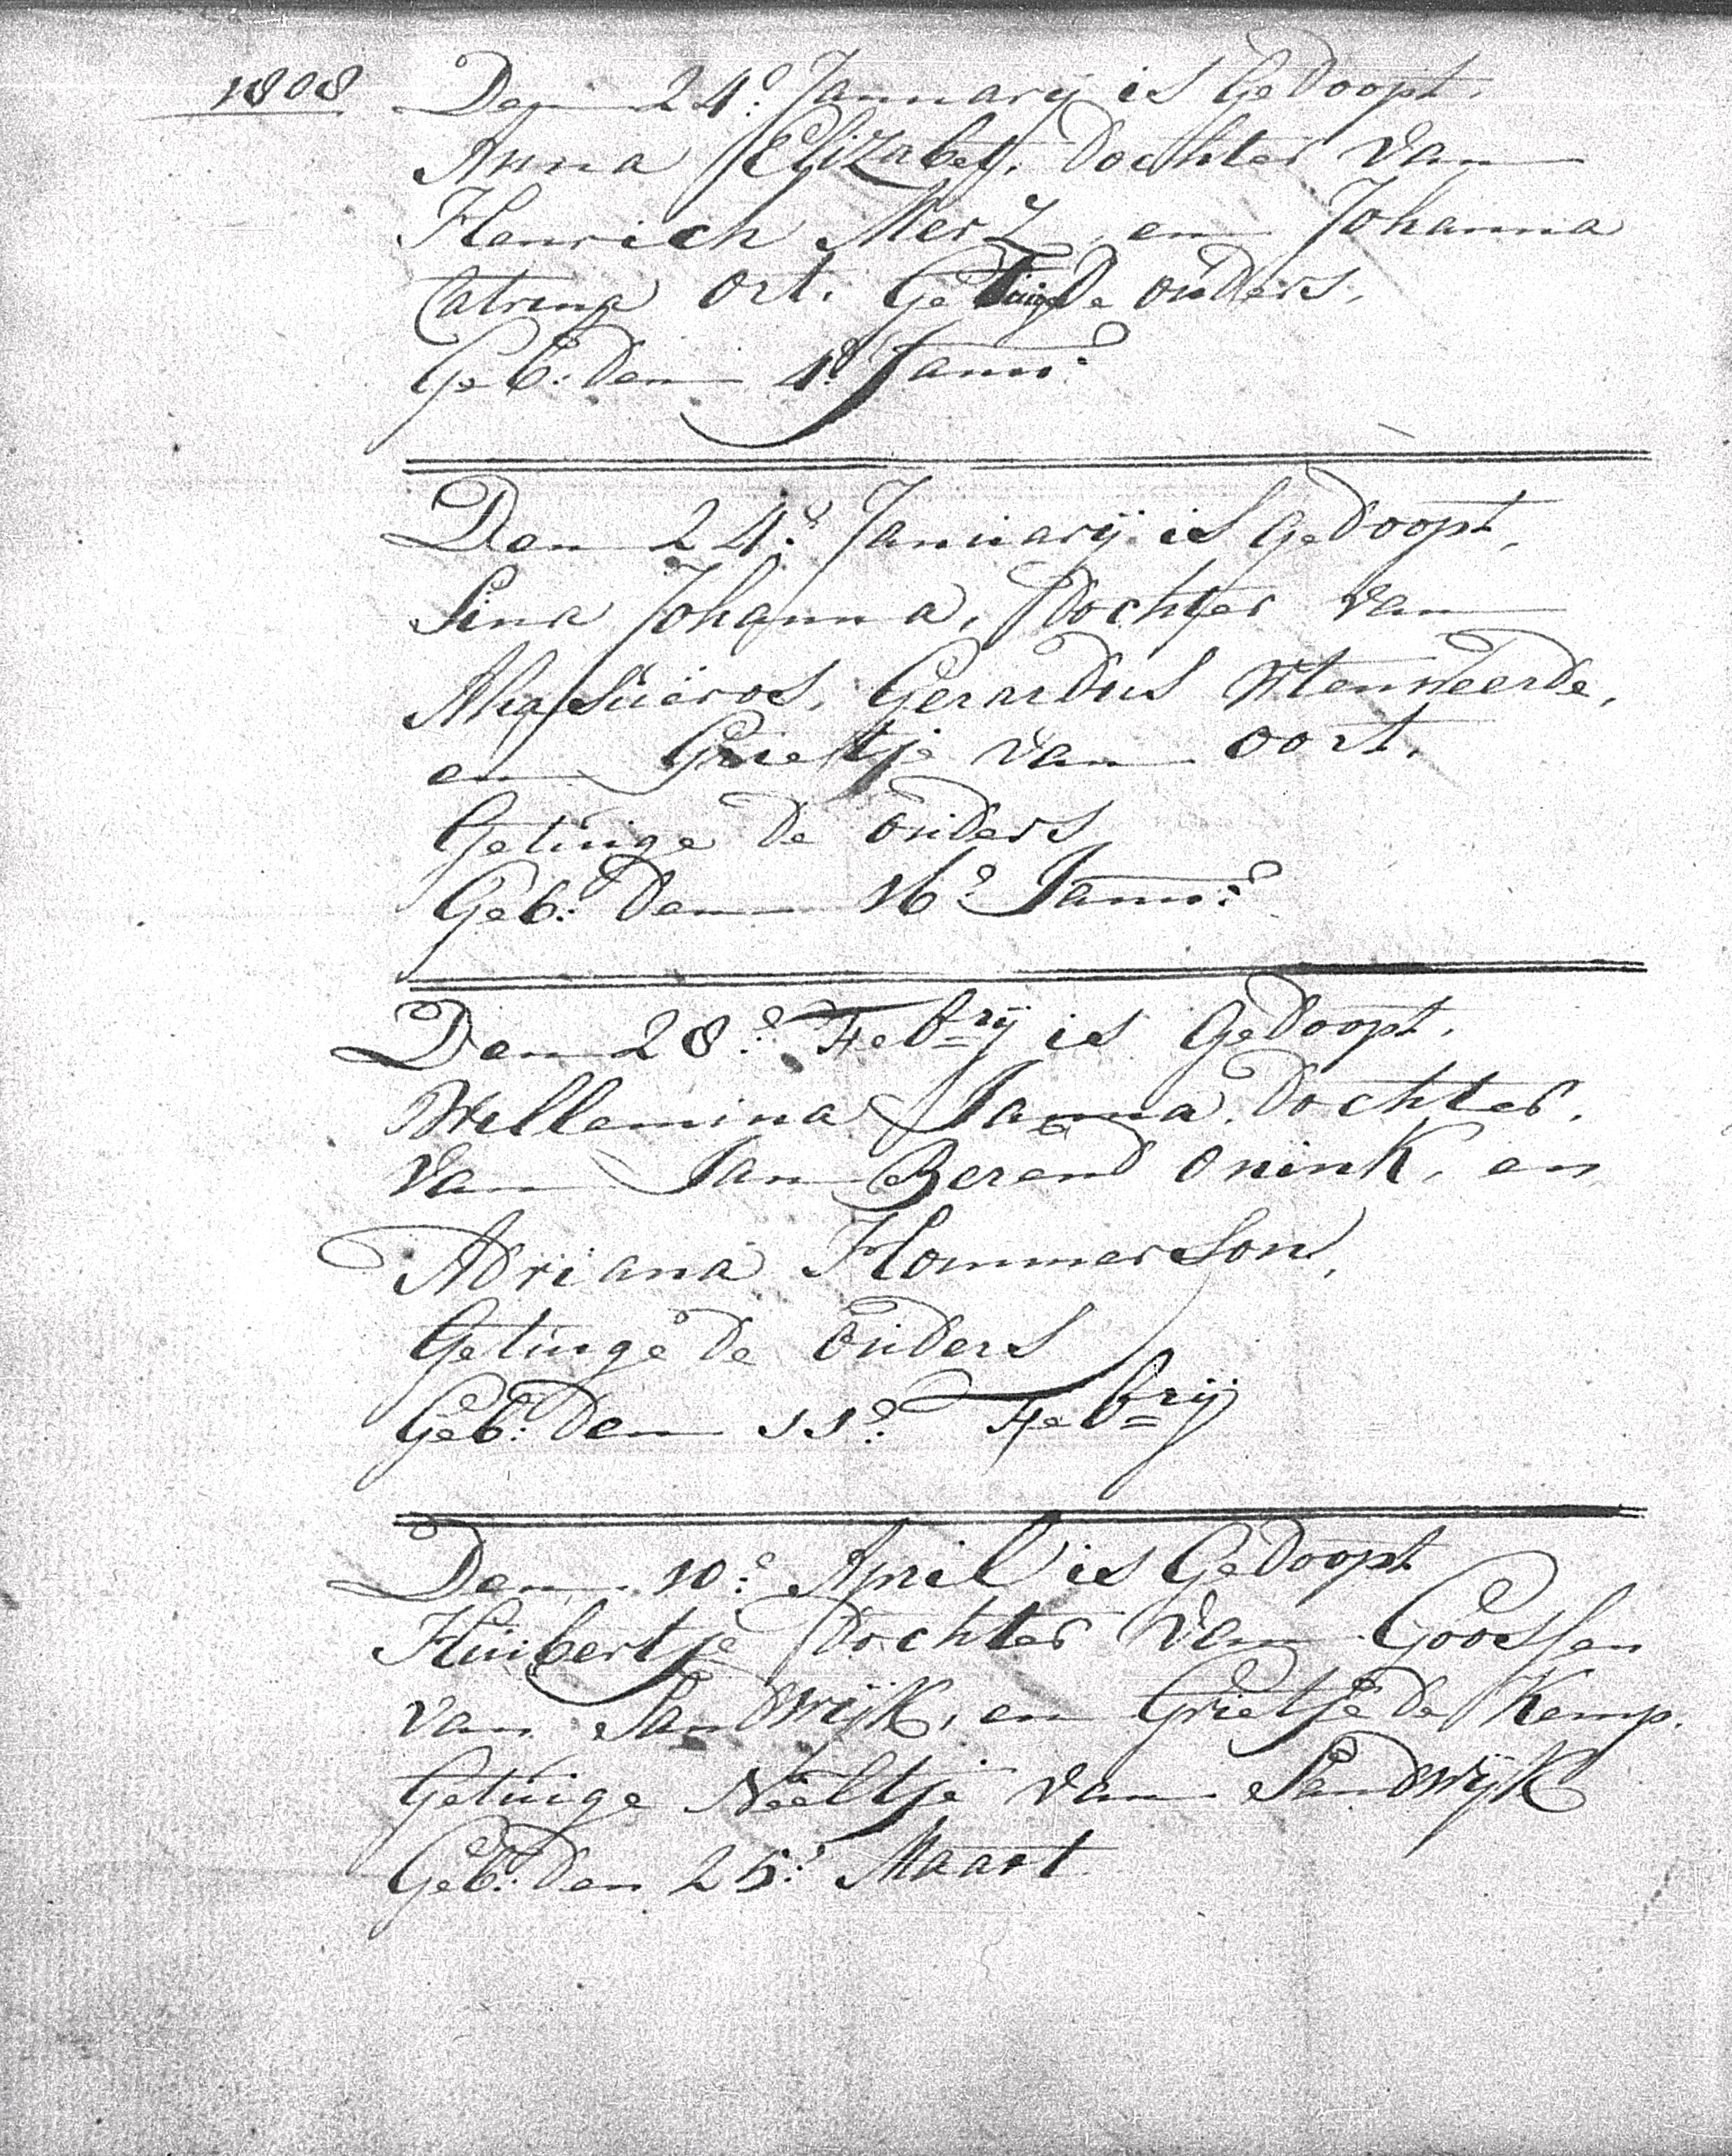 1808
Den 24e January is Gedoopt,
Anna Elizabet, Dochter van
Henrich Merz, en Johanna
Catrina Ort. Getuige De ouders,
Geb: Den 4e Janu:
Den 24e Januarij is gedoopt,
Sina Johanna, Dochter van
Ahasúeros, Gerardus Wtenweerde,
en Grietje van Oort,
Getúige De oúders
Geb: Den 16e Janu:
Den 28e Febrij is Gedoopt,
Willemina Janna Dochter,
van Jan Berend Onink, en
Adriana Hommerson,
Getúige De Oúders
Geb: Den 11e Febrij
Den 10e April is Gedoopt
Huibertje Dochter van Goossen
van Sandwijk, en Grietje de Kemp.
Getúige Neeltje van Sandwijk
Geb: Den 25e Maart